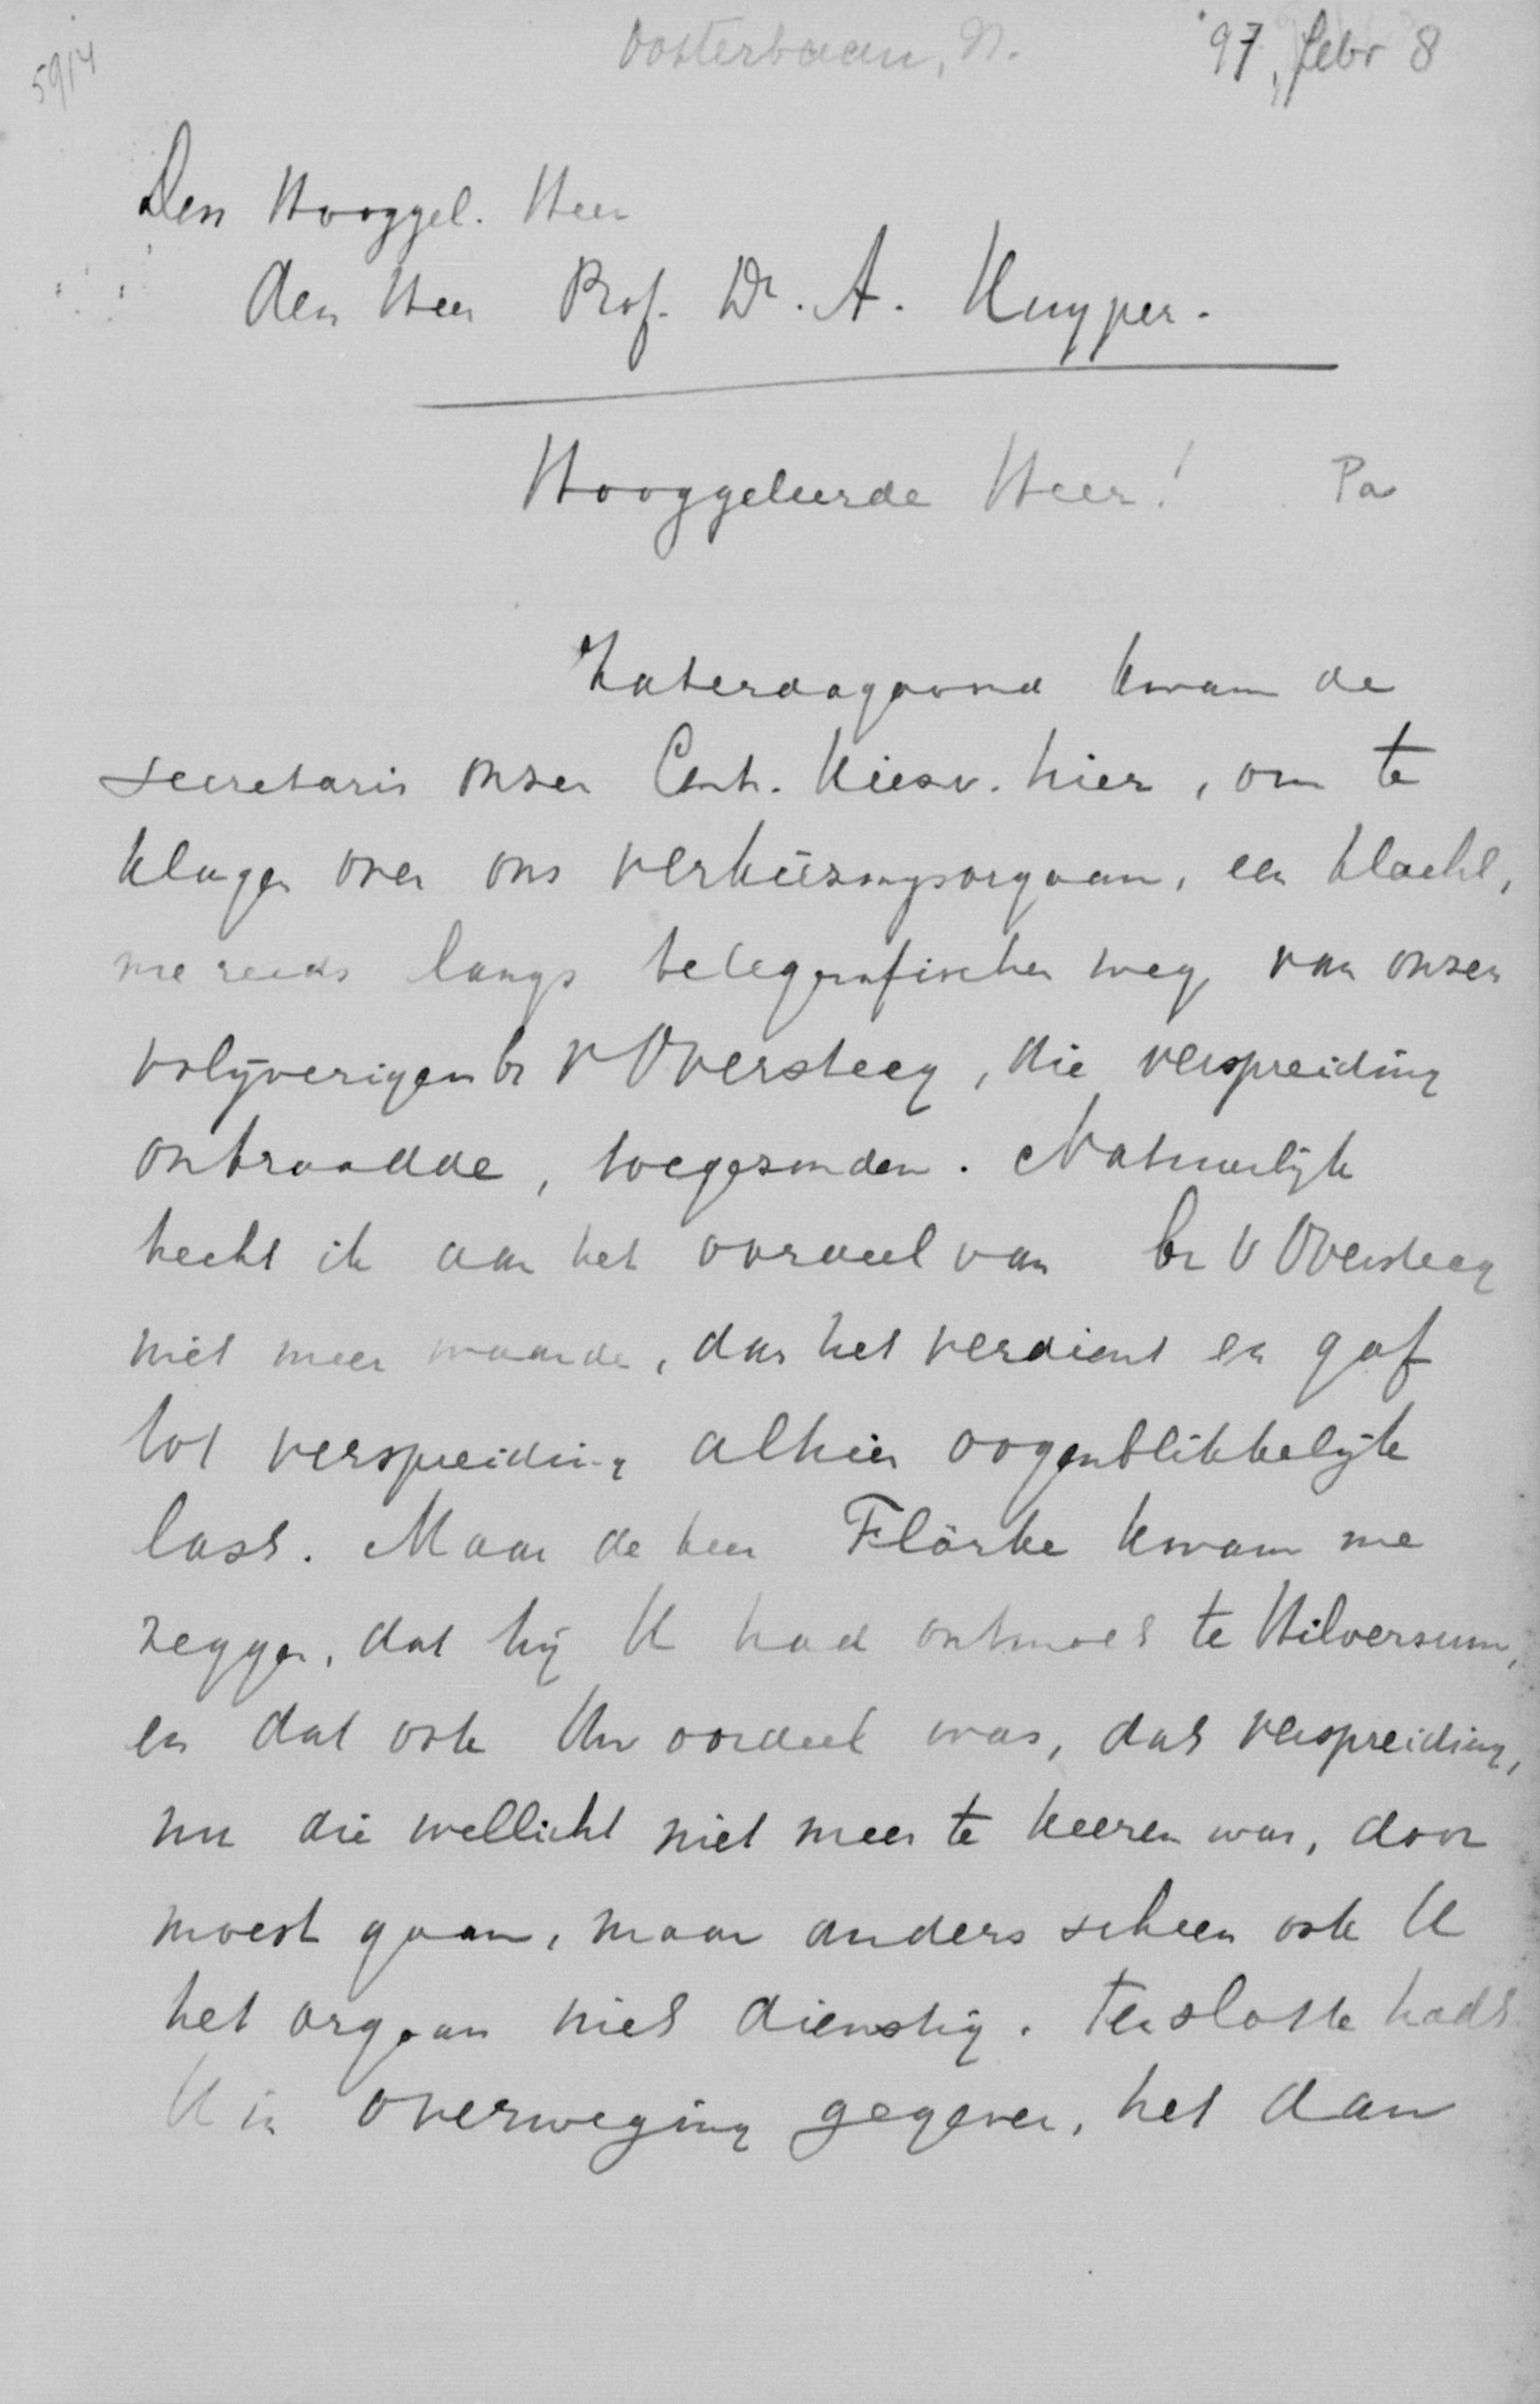 5914
Oosterbaan, N.
'97, febr 8
Den Hooggel. Heer
den Heer Prof. Dr. A. Kuyper.
Hooggeleerde Heer!
Pa
Zaterdagavond kwam de
secretaris onzer Centr. Kiesv. hier, om te
klagen over ons verkiezingsorgaan, een klacht,
me reeds langs telegrafischen weg van onzen
volijverigen br v Oversteeg, die verspreiding
ontraadde, toegezonden. Natuurlijk
hecht ik aan het oordeel van br v Oversteeg
niet meer waarde, dan het verdient en gaf
tot verspreiding alhier oogenblikkelijk
last. Maar de heer Flörke kwam me
zeggen, dat hij U had ontmoet te Hilversum,
en dat ook Uw oordeel was, dat verspreiding,
nu die wellicht niet meer te keeren was, door
moest gaan, maar anders scheen ook U
het orgaan niet dienstig. Ten slotte hadt
U in overweging gegeven, het dan